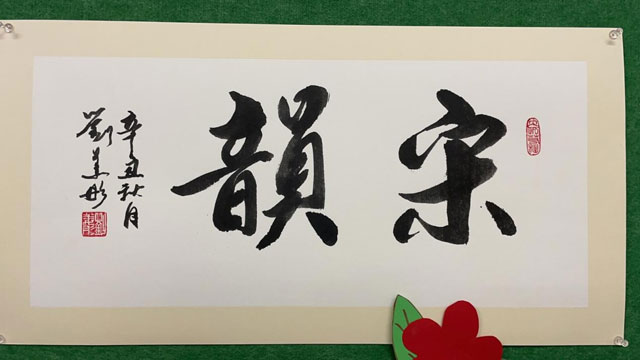 宋韻
辛丑秋月
劉美彤